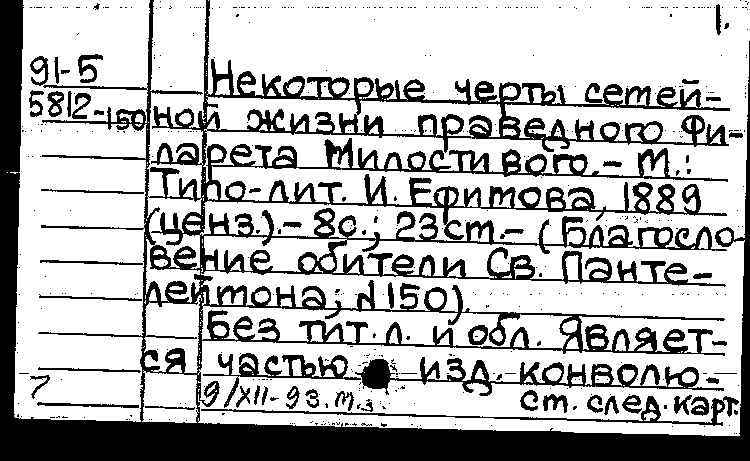 1.
91-5
5812-150
Некоторые черты семей-
ной жизни праведного Фи-
ларета Милостивого.- М.:
Типо-лит. И. Ефимова, 1889
(ценз.).- 8с.; 23см.- (Благосло-
вение обители Св. Панте-
леймона; N 150).
Без тит. л. и обл. Являет-
ся частью изд. конволю-
9/XII-93. М.З.
См. след. карт.